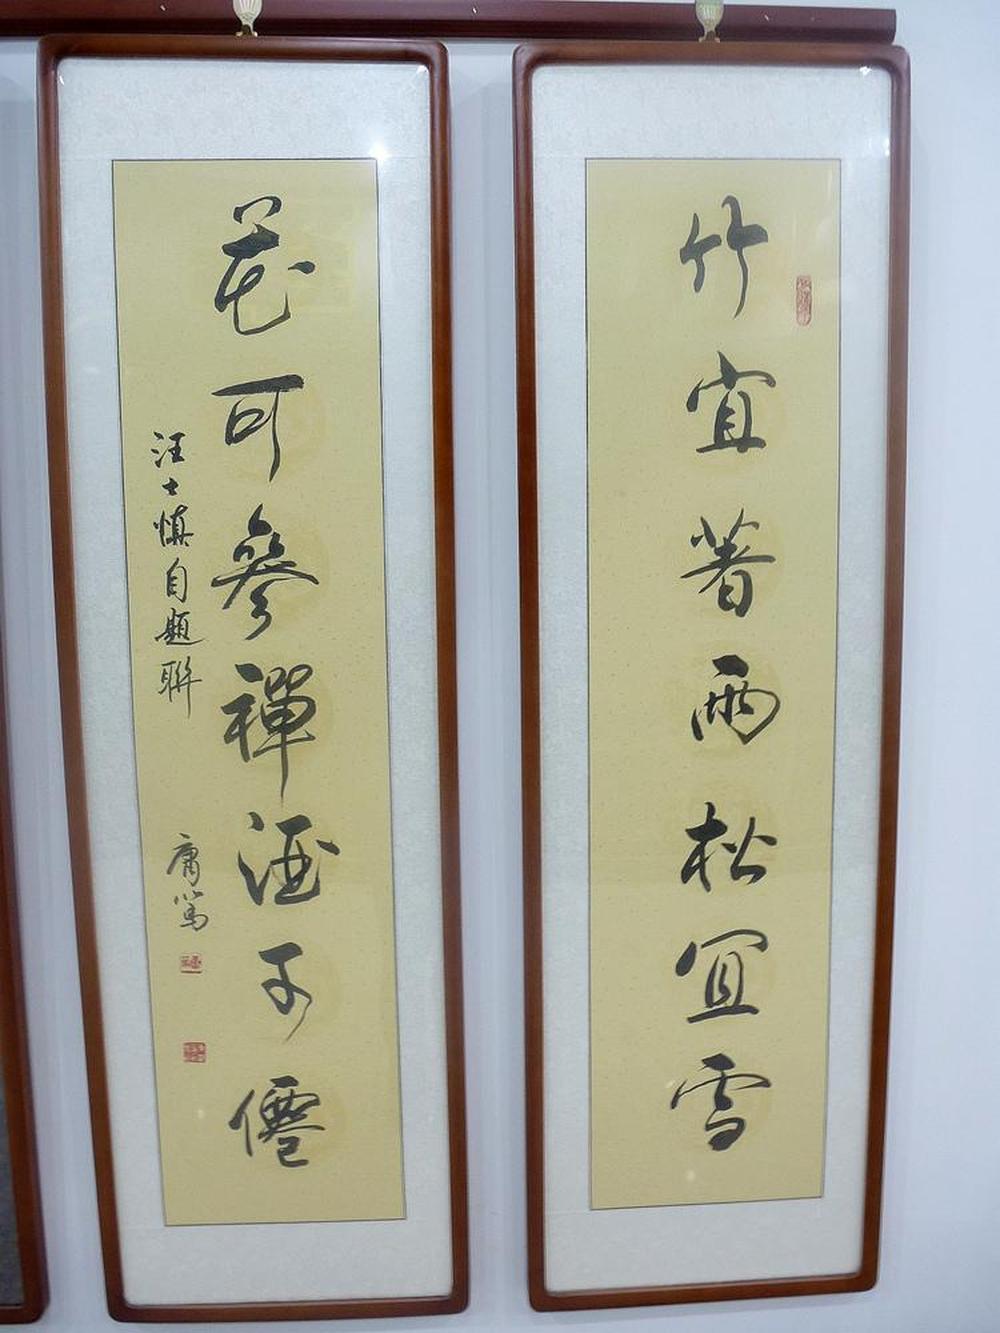 竹宜著雨松宜雪
花可參禪酒可僊
汪士慎自題聯
庸篤